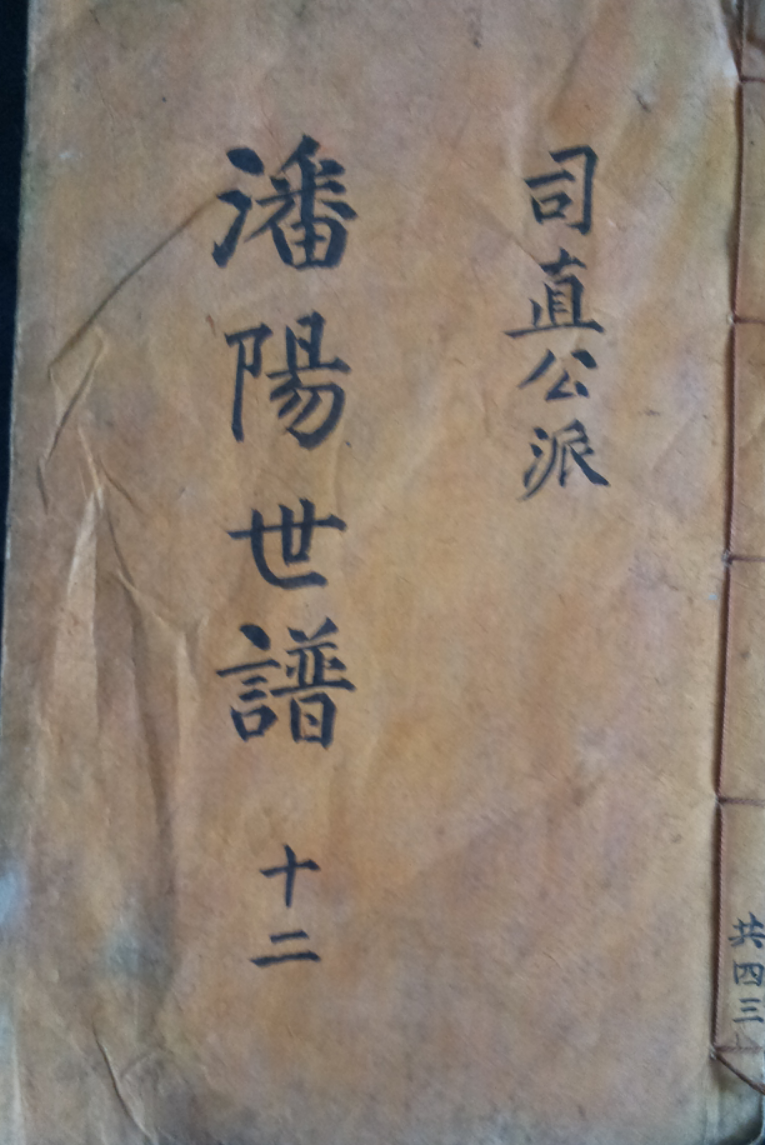 共四三
司直公派
潘陽世譜 十二